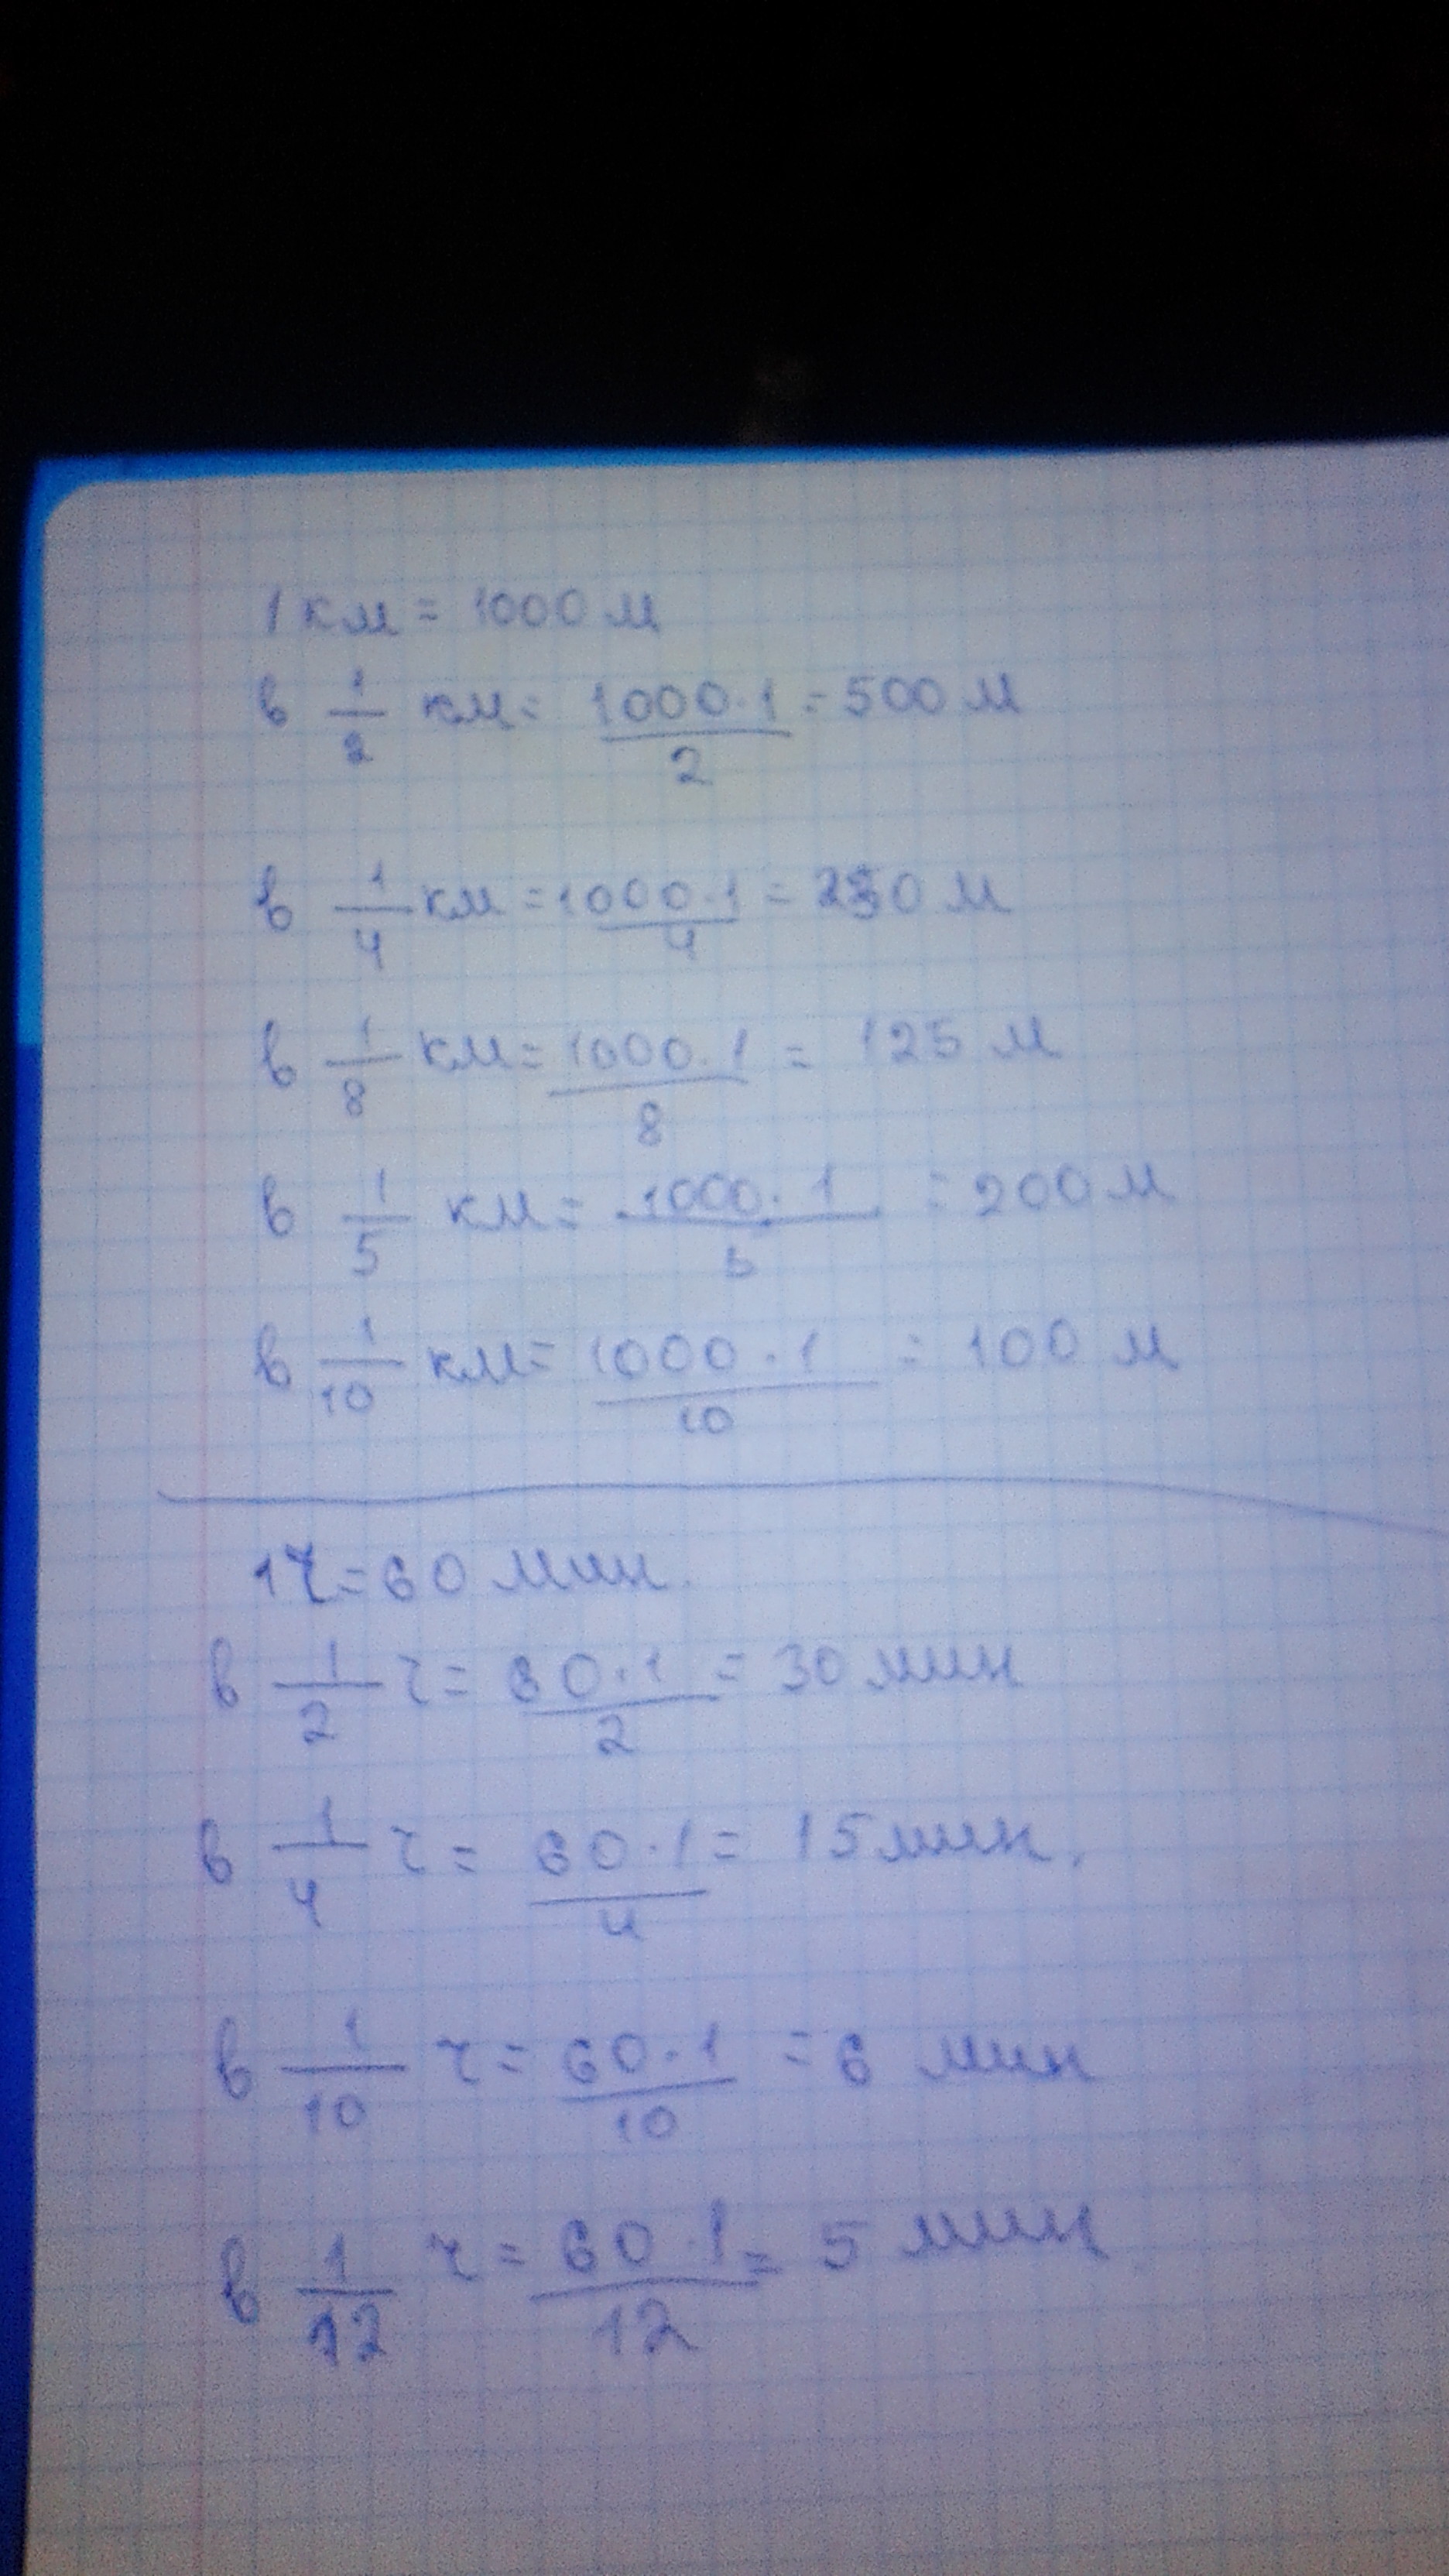 1 км = 1000 м
в 1/2 км = 1000·1/2 = 500 м
в 1/4 км = 1000·1/4 = 250 м
в 1/8 км = 1000·1/8 = 125 м
в 1/5 км = 1000·1/5 = 200 м
в 1/10 км = 1000·1/10 = 100 м
1ч = 60 мин.
в 1/2 ч = 60·1/2 = 30 мин
в 1/4 ч = 60·1/4 = 15 мин.
в 1/10 ч = 60·1/10 = 6 мин
в 1/12 ч = 60·1/12 = 5 мин